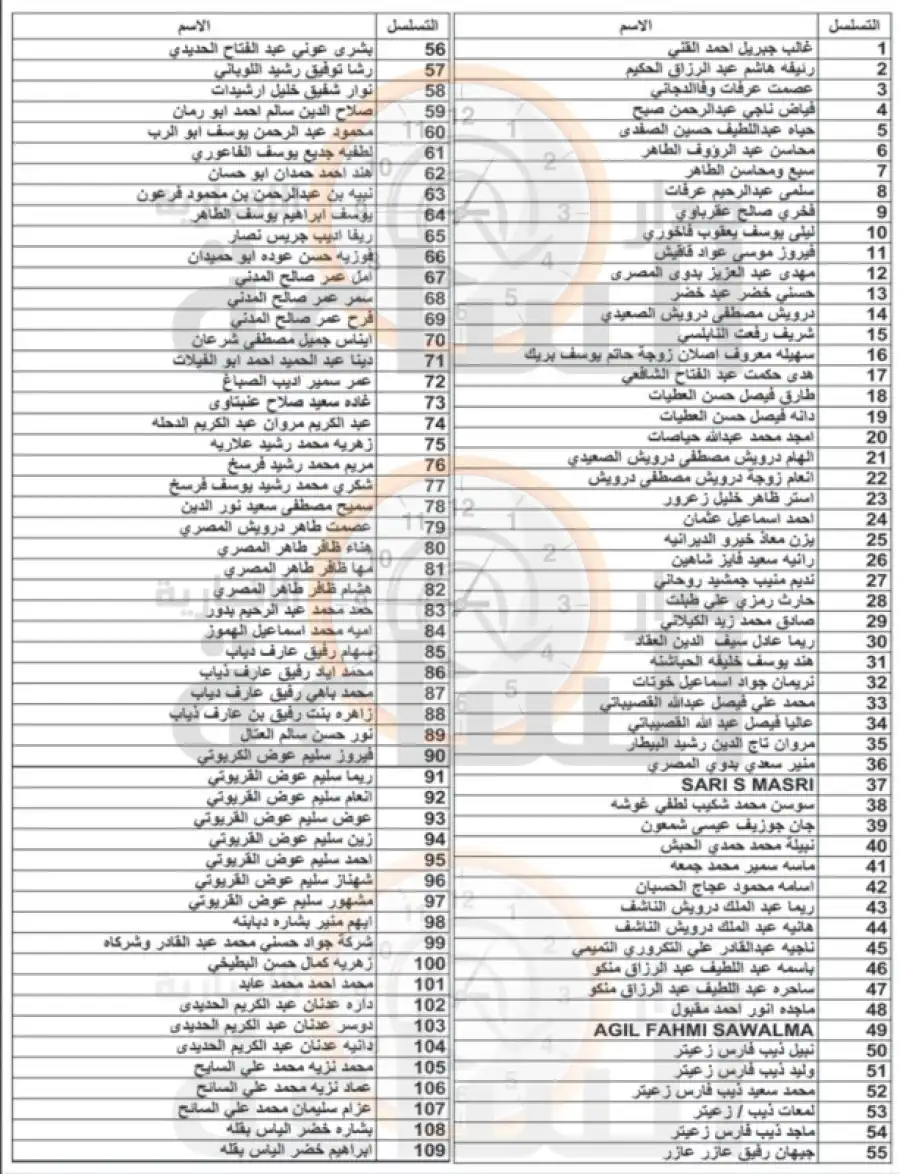 التسلسل الاسم
1 غالب جبريل احمد القني
2 رئيفه هاشم عبد الرزاق الحكيم
3 عصمت عرفات وفاالدجاني
4 فياض ناجي عبدالرحمن صبح
5 حياه عبداللطيف حسين الصفدى
6 محاسن عبد الرؤوف الطاهر
7 سبع ومحاسن الطاهر
8 سلمى عبدالرحيم عرفات
9 فخري صالح عقرباوي
10 ليلى يوسف يعقوب فاخوري
11 فيروز موسى عواد قاقيش
12 مهدى عبد العزيز بدوى المصرى
13 حسني خضر عبد خضر
14 درويش مصطفى درويش الصعيدي
15 شريف رفعت النابلسي
16 سهيله معروف اصلان زوجة حاتم يوسف بريك
17 هدى حكمت عبد الفتاح الشافعي
18 طارق فيصل حسن العطيات
19 دانه فيصل حسن العطيات
20 امجد محمد عبدالله حياصات
21 الهام درويش مصطفى درويش الصعيدي
22 انعام زوجة درويش مصطفى درويش
23 استر ظاهر خليل زعرور
24 احمد اسماعيل عثمان
25 يزن معاذ خيرو الديرانيه
26 رانيه سعيد فايز شاهين
27 نديم منيب جمشيد روحاني
28 حارث رمزي علي طبلت
29 صادق محمد زيد الكيلاني
30 ريما عادل سيف الدين العقاد
31 هند يوسف خليفه الحباشنه
32 نريمان جواد اسماعيل خونات
33 محمد علي فيصل عبدالله القصيباتي
34 عاليا فيصل عبد الله القصيباتي
35 مروان تاج الدين رشيد البيطار
36 منير سعدي بدوي المصري
37 SARI S MASRI
38 سوسن محمد شكيب لطفي غوشه
39 جان جوزيف عيسى شمعون
40 نبيلة محمد حمدي الحبش
41 ماسه سمير محمد جمعه
42 اسامه محمود عجاج الحسبان
43 ريما عبد الملك درويش الناشف
44 هانيه عبد الملك درويش الناشف
45 ناجيه عبدالقادر علي التكروري التميمي
46 باسمه عبد اللطيف عبد الرزاق منكو
47 ساحره عبد اللطيف عبد الرزاق منكو
48 ماجده انور احمد مقبول
49 AGIL FAHMI SAWALMA
50 نبيل ذيب فارس زعيتر
51 وليد ذيب فارس زعيتر
52 محمد سعيد ذيب فارس زعيتر
53 لمعات ذيب / زعيتر
54 ماجد ذيب فارس زعيتر
55 جيهان رفيق عازر عازر
التسلسل الاسم
56 بشرى عوني عبد الفتاح الحديدي
57 رشا توفيق رشيد اللوباني
58 نوار شفيق خليل ارشيدات
59 صلاح الدين سالم احمد ابو رمان
60 محمود عبد الرحمن يوسف ابو الرب
61 لطفيه جديع يوسف الفاعوري
62 هند احمد حمدان ابو حسان
63 نبيه بن عبدالرحمن بن محمود فرعون
64 يوسف ابراهيم يوسف الطاهر
65 ريفا اديب جريس نصار
66 فوزيه حسن عوده ابو حميدان
67 امل عمر صالح المدني
68 سمر عمر صالح المدني
69 فرح عمر صالح المدني
70 ايناس جميل مصطفى شرعان
71 دينا عبد الحميد احمد ابو الفيلات
72 عمر سمير اديب الصباغ
73 غاده سعيد صلاح عنبتاوى
74 عبد الكريم مروان عبد الكريم الدحله
75 زهريه محمد رشيد علاريه
76 مريم محمد رشيد فرسخ
77 شكري محمد رشيد يوسف فرسخ
78 سميح مصطفى سعيد نور الدين
79 عصمت طاهر درويش المصري
80 هناء ظافر طاهر المصري
81 مها ظافر طاهر المصري
82 هشام ظافر طاهر المصري
83 حمد محمد عبد الرحيم بدور
84 اميه محمد اسماعيل الهموز
85 سهام رفيق عارف دياب
86 محمد اياد رفيق عارف ذياب
87 محمد باهي رفيق عارف دياب
88 زاهره بنت رفيق بن عارف ذياب
89 نور حسن سالم العتال
90 فيروز سليم عوض الكريوتي
91 ريما سليم عوض القريوتي
92 انعام سليم عوض القريوتي
93 عوض سليم عوض القريوتي
94 زين سليم عوض القريوتي
95 احمد سليم عوض القريوتي
96 شهناز سليم عوض القريوتي
97 مشهور سليم عوض القريوتي
98 ايهم منير بشاره دبابنه
99 شركة جواد حسني محمد عبد القادر وشركاه
100 زهريه كمال حسن البطيخي
101 محمد احمد محمد عابد
102 داره عدنان عبد الكريم الحديدى
103 دوسر عدنان عبد الكريم الحديدى
104 دانيه عدنان عبد الكريم الحديدى
105 محمد نزيه محمد علي السايح
106 عماد نزيه محمد علي السائح
107 عزام سليمان محمد علي السائح
108 بشاره خضر الياس بقله
109 ابراهيم خضر الياس بقله